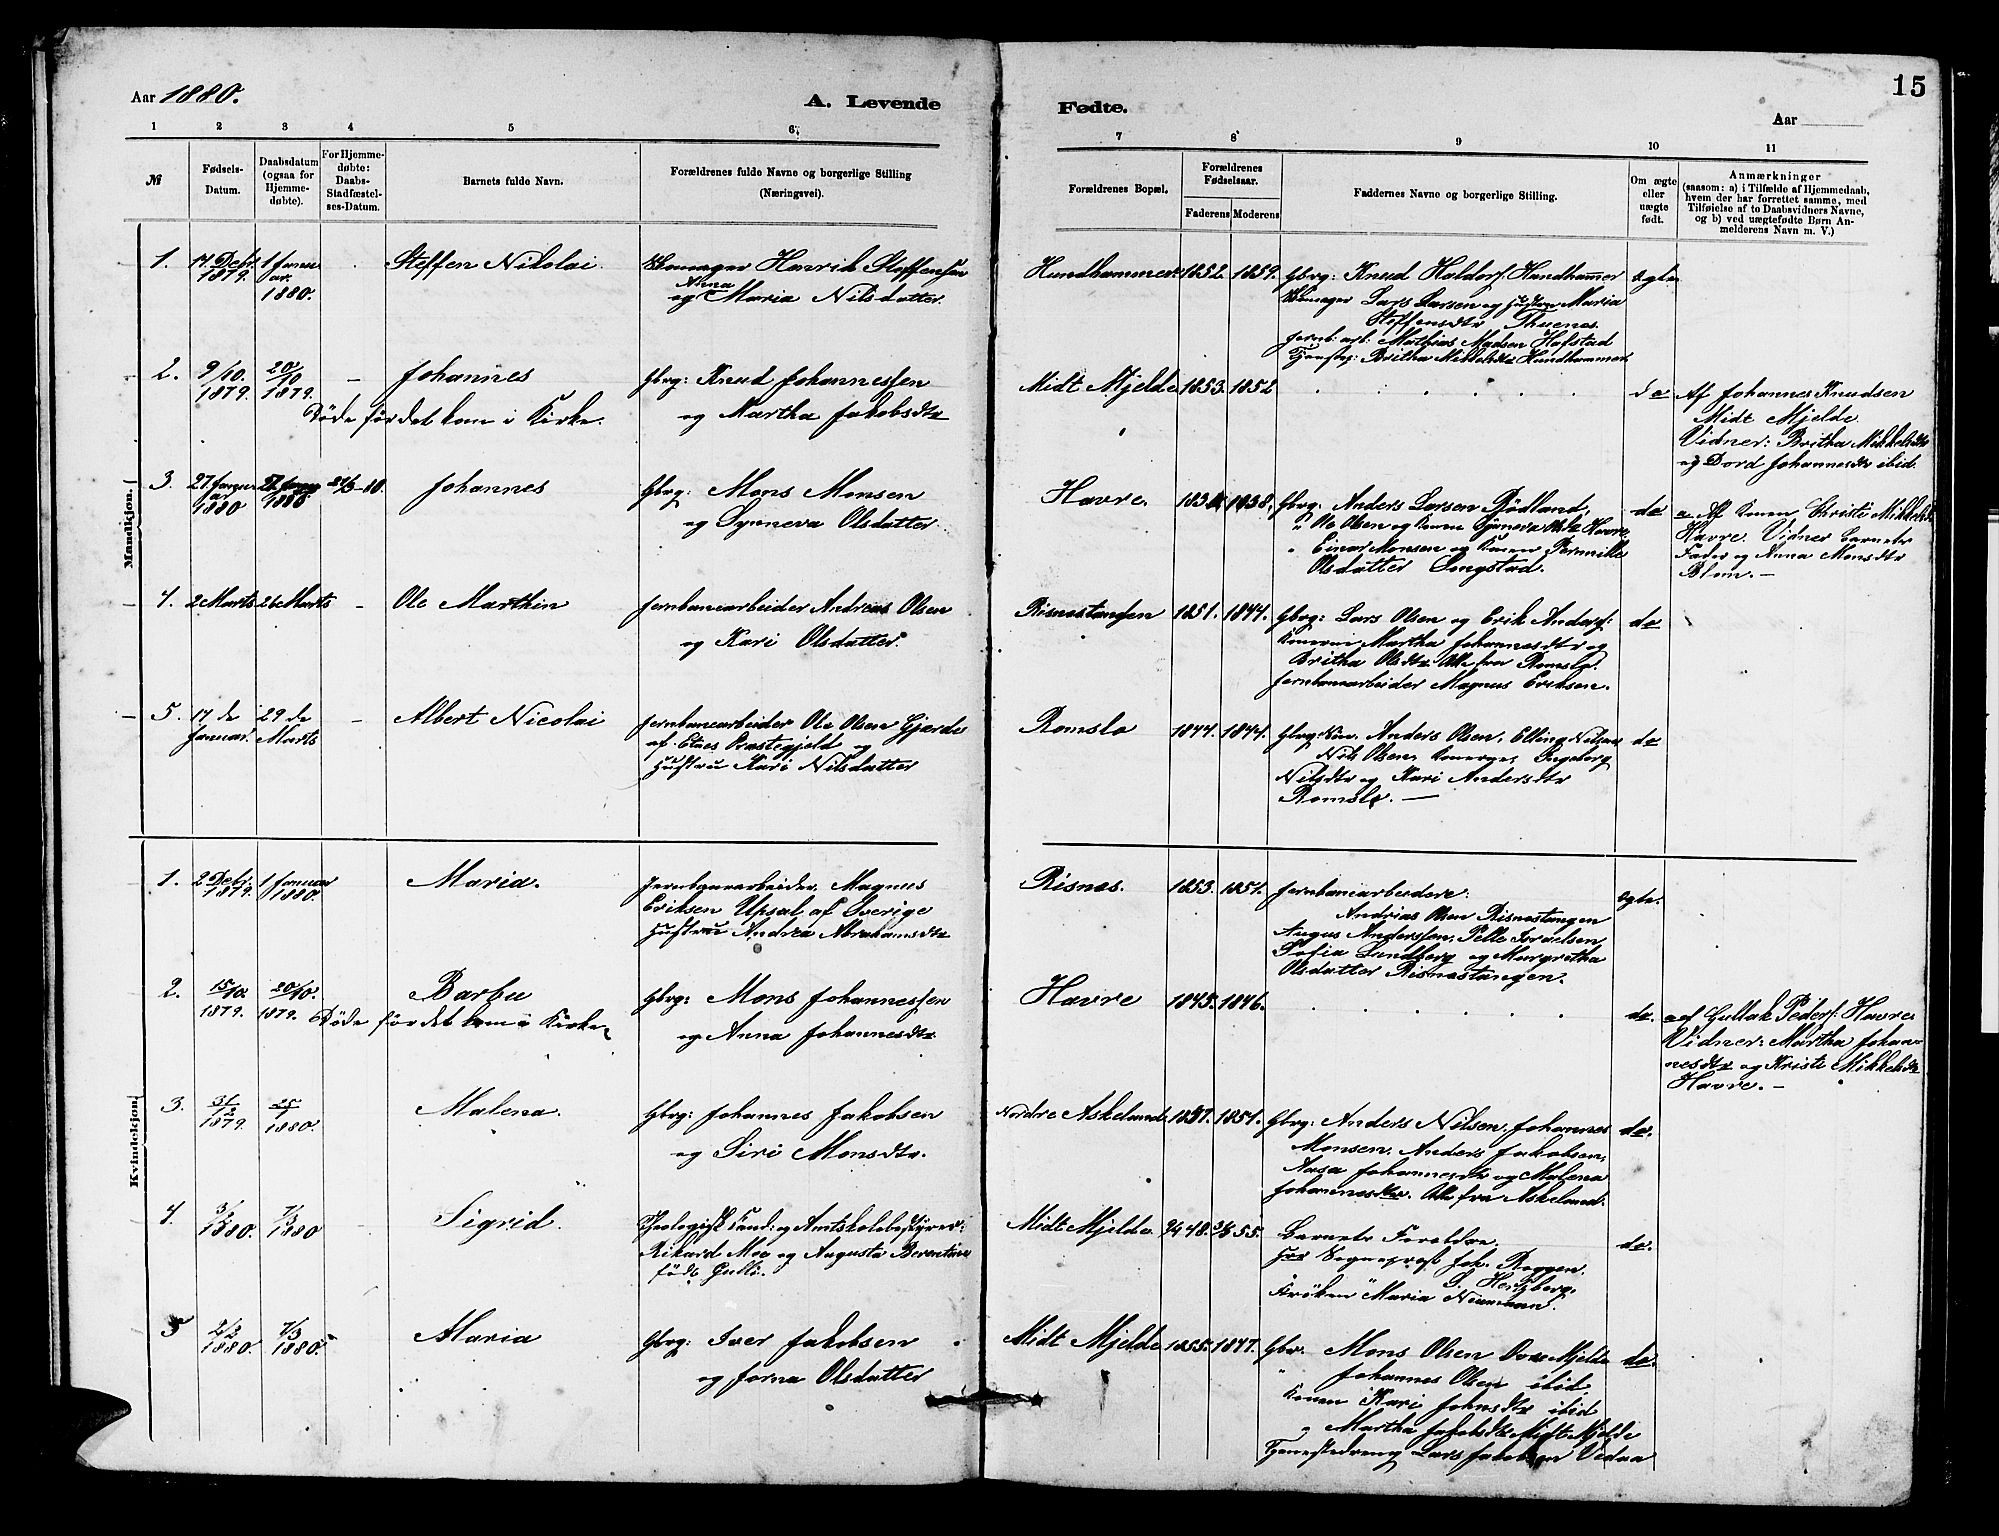 15
Aar 1880.
A. Levende
Fødte.
Aar
1 2 3 4 5 6 7 8 9 10 11
№
Fødsels-
Datum.
Daabsdatum
(ogsaa for
Hjemme-
døbte).
For Hjemme-
døbte:
Daabs-
Stadfæstel-
ses-Datum.
Barnets fulde Navn.
Forældrenes fulde Navne og borgerlige Stilling
(Næringsvei).
Forældrenes Bopæl.
Forældrenes
Fødselsaar.
Faderens Moderens
Faddernes Navne og borgerlige Stilling.
Om ægte
eller
uægte
født.
Anmærkninger
(saasom: a) i Tilfælde af Hjemmedaab,
hvem der har forrettet samme, med
Tilføielse af to Daabsvidners Navne,
og b) ved uægtefødte Børn An-
melderens Navn m. V.)
Mandkjøn.
1.
17. Debr.
1879.
1 Janu
ar.
1880.
Steffen Nikolai.
Henrik Steffensen
Anna
og Maria Nilsdatter.
Hundhammer
1852. 1859.
Gbrg: Knud Haldors. Hundhammer
Lars Larsen og Hustru Maria
Steffensdtr Thuenes.
Jernb: arb: Mathias Madsen Hafstad
Tjenestpg: Britha Mikkelsdtr Hundhammer.
ægte
2.
9/10.
1879.
20/10
1879.
Johannes
Døde før det kom i Kirke.
Gbrg: Knud Johannessen
og Martha Jakobsdtr
Midt Mjelde
1853. 1852
do
Af Johannes Knudsen
Midt Mjelde.
Vidner: Britha Mikkelsdtr
og Dord Johannesdtr ibid.
3.
27 Januar
1880
Johannes
Gbrg: Mons Monsen
og Synneva Olsdatter.
Havre.
1838.
Gbrg: Anders Larsen Rødland,
Ole Olsen og Konen Synneva Olsdtr Havre.
Einar Monsen og Konen Pernille
Olsdatter Songstad.
do
a Af Konen Christi Mikkelsdtr
Havre. Vidner Barnets
Fader og Anna Monsdtr
Blom. —
4.
2 Marts
26 Marts
Ole Marthin
Jernbanearbeider Andreas Olsen
og Kari Olsdatter.
Risnestangen
1851. 1844.
Gbrg: Lars Olsen og Erik Anders:
Konerne Martha Johannesdtr og
Britha Olsdtr Alle fra Romslo.
Jernbanearbeider Magnus Eriksen.
do
5.
17 de
Januar.
29 de
Marts
Albert Nicolai
Jernbanearbeider Ole Olsen Gjerde
af Etnes Præstegjeld og
Hustru Kari Nilsdatter
Romslo
1844. 1844.
Anders Olsen, Elling Nilsen
Nils Olsen, Konerne, Ingeborg
Nilsdtr og Kari Andersdtr
Romslo. —
do
Kvindekjøn.
1.
2 Debr.
1879.
1 Januar
1880.
Maria.
Jernbanearbeider Magnus
Eriksen Upsal af Sverige
Hustru Andrea Abrahamsdtr
Risnes.
1853. 1851.
Jernbanearbeidere:
Andrias Olsen Risnestangen
Augus Anderssen, Pelle Israelsen
Sofia Lundberg og Margretha
Olsdatter Risnestangen.
ægte.
2.
15/10.
1879.
20/10.
1879.
Barbu
Døde før det kom i Kirke
Gbrg: Mons Johannessen
og Anna Johannesdtr.
Havre
1843. 1846.
do.
af Gullak Peders: Havre
Vidner: Martha Johan-
nesdtr og Kristi Mikkelsdtr
Havre. —
3.
31/12
1879.
25/1
1880.
Malena.
Gbrg: Johannes Jakobsen
og Siri Monsdtr.
Nordre Askeland
1857. 1851.
Gbrg: Anders Nilsen, Johannes
Monsen. Anders Jakobsen,
Aasa Johannesdtr og Malena
Johannesdtr. Alle fra Askeland.
do.
4.
1880.
7/3
1880
Sigrid.
Theologisk Kand: og Amtskolebestyrer:
Rikard Moe og Augusta Berentine
født Gulli.
Midt Mjelde
Barnets Forældre.
Sogneprest Joh. Roggen.
S. Hertzberg.
Frøken Maria Neumann.
do.
5
2/2
1880.
7/3
1880.
Maria
Gbrg: Iver Jakobsen
og Jorna Olsdatter
Midt Mjelde
1855. 1847.
Gbr. Mons Olsen Øvre Mjelde
Johannes Olsen ibid.
Konen Kari Johnsdtr ibid
Martha Jakobsdtr Midt Mjelde
Tjenestedreng Lars Jakobsen Vedaa
do.